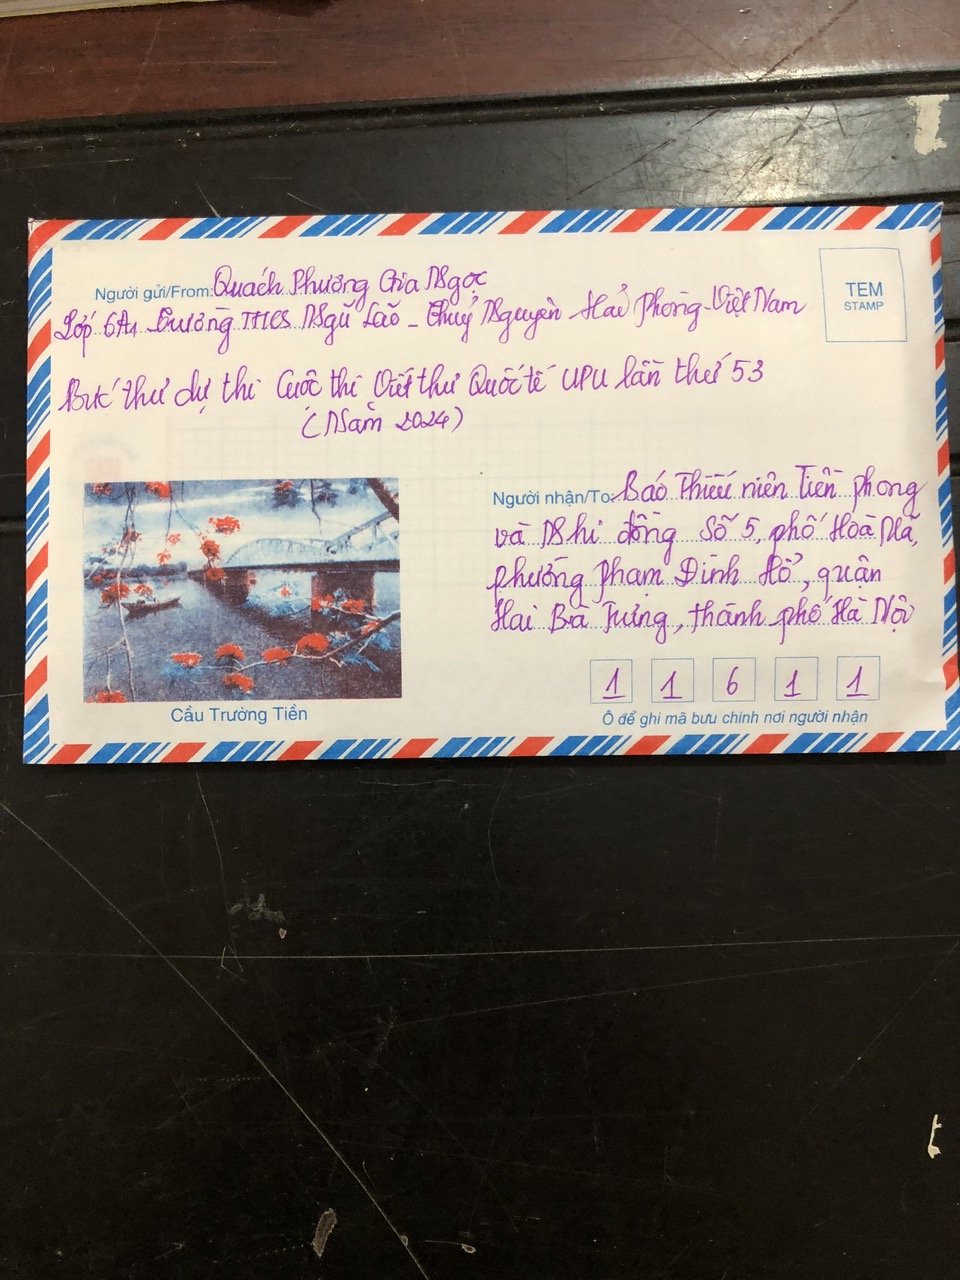 Người gửi/From: Quách Phương Gia Ngọc
Lớp 6A1 Trường THCS Ngũ Lão - Thuỷ Nguyên - Hải Phòng - Việt Nam
TEM
STAMP
Bức thư dự thi Cuộc thi Viết thư Quốc tế UPU lần thứ 53
(Năm 2024)
Người nhận/To: Báo Thiếu niên Tiền phong
và Nhi đồng Số 5, phố Hoà Mã,
phường Phạm Đình Hổ, quận
Hai Bà Trưng, thành phố Hà Nội
1 1 6 1 1
Cầu Trường Tiền
Ô để ghi mã bưu chính nơi người nhận